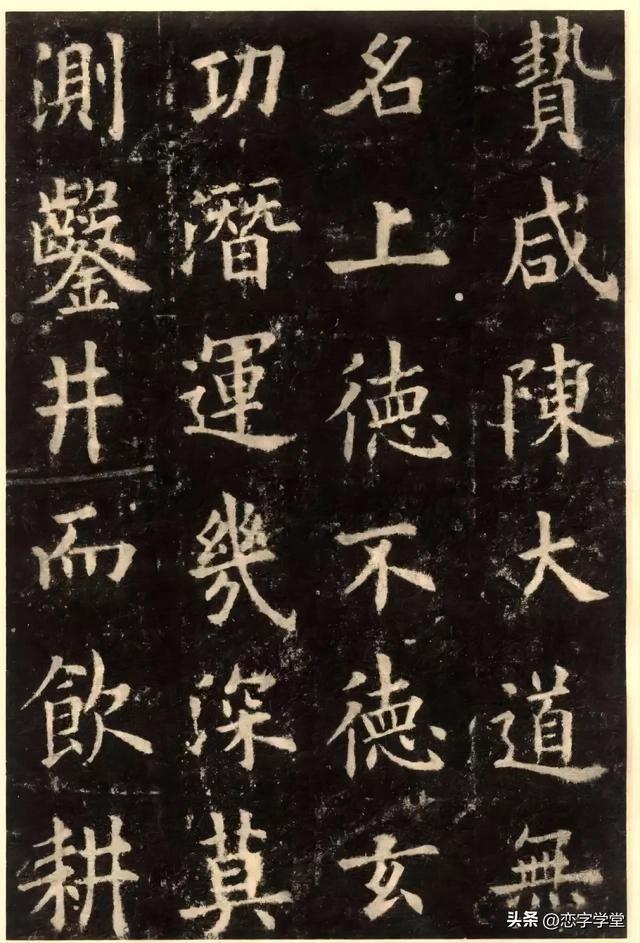 贄咸陳大道無
名上德不德玄
功潛運幾深莫
測鑿井而飲耕
头条 @恋字学堂